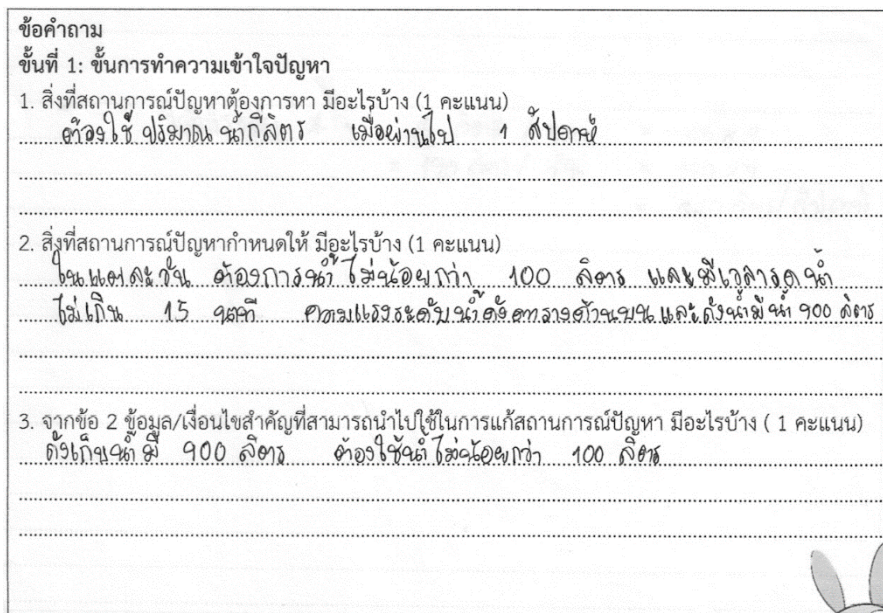 ข้อคำถาม
ขั้นที่ 1: ขั้นการทำความเข้าใจปัญหา
1. สิ่งที่สถานการณ์ปัญหาต้องการหา มีอะไรบ้าง (1 คะแนน)
ต้องใช้ ปริมาณ น้ำกี่ลิตร เมื่อผ่านไป 1 สัปดาห์
2. สิ่งที่สถานการณ์ปัญหากำหนดให้ มีอะไรบ้าง (1 คะแนน)
ในแต่ละวัน ต้องการน้ำ ไม่น้อยกว่า 100 ลิตร และมีเวลารดน้ำ
ไม่เกิน 15 นาที ความแรงระดับน้ำดังตารางด้านบน และถังน้ำมีน้ำ 900 ลิตร
3. จากข้อ 2 ข้อมูล/เงื่อนไขสำคัญที่สามารถนำไปใช้ในการแก้สถานการณ์ปัญหา มีอะไรบ้าง ( 1 คะแนน)
ถังเก็บน้ำ มี 900 ลิตร ต้องใช้น้ำ ไม่น้อยกว่า 100 ลิตร